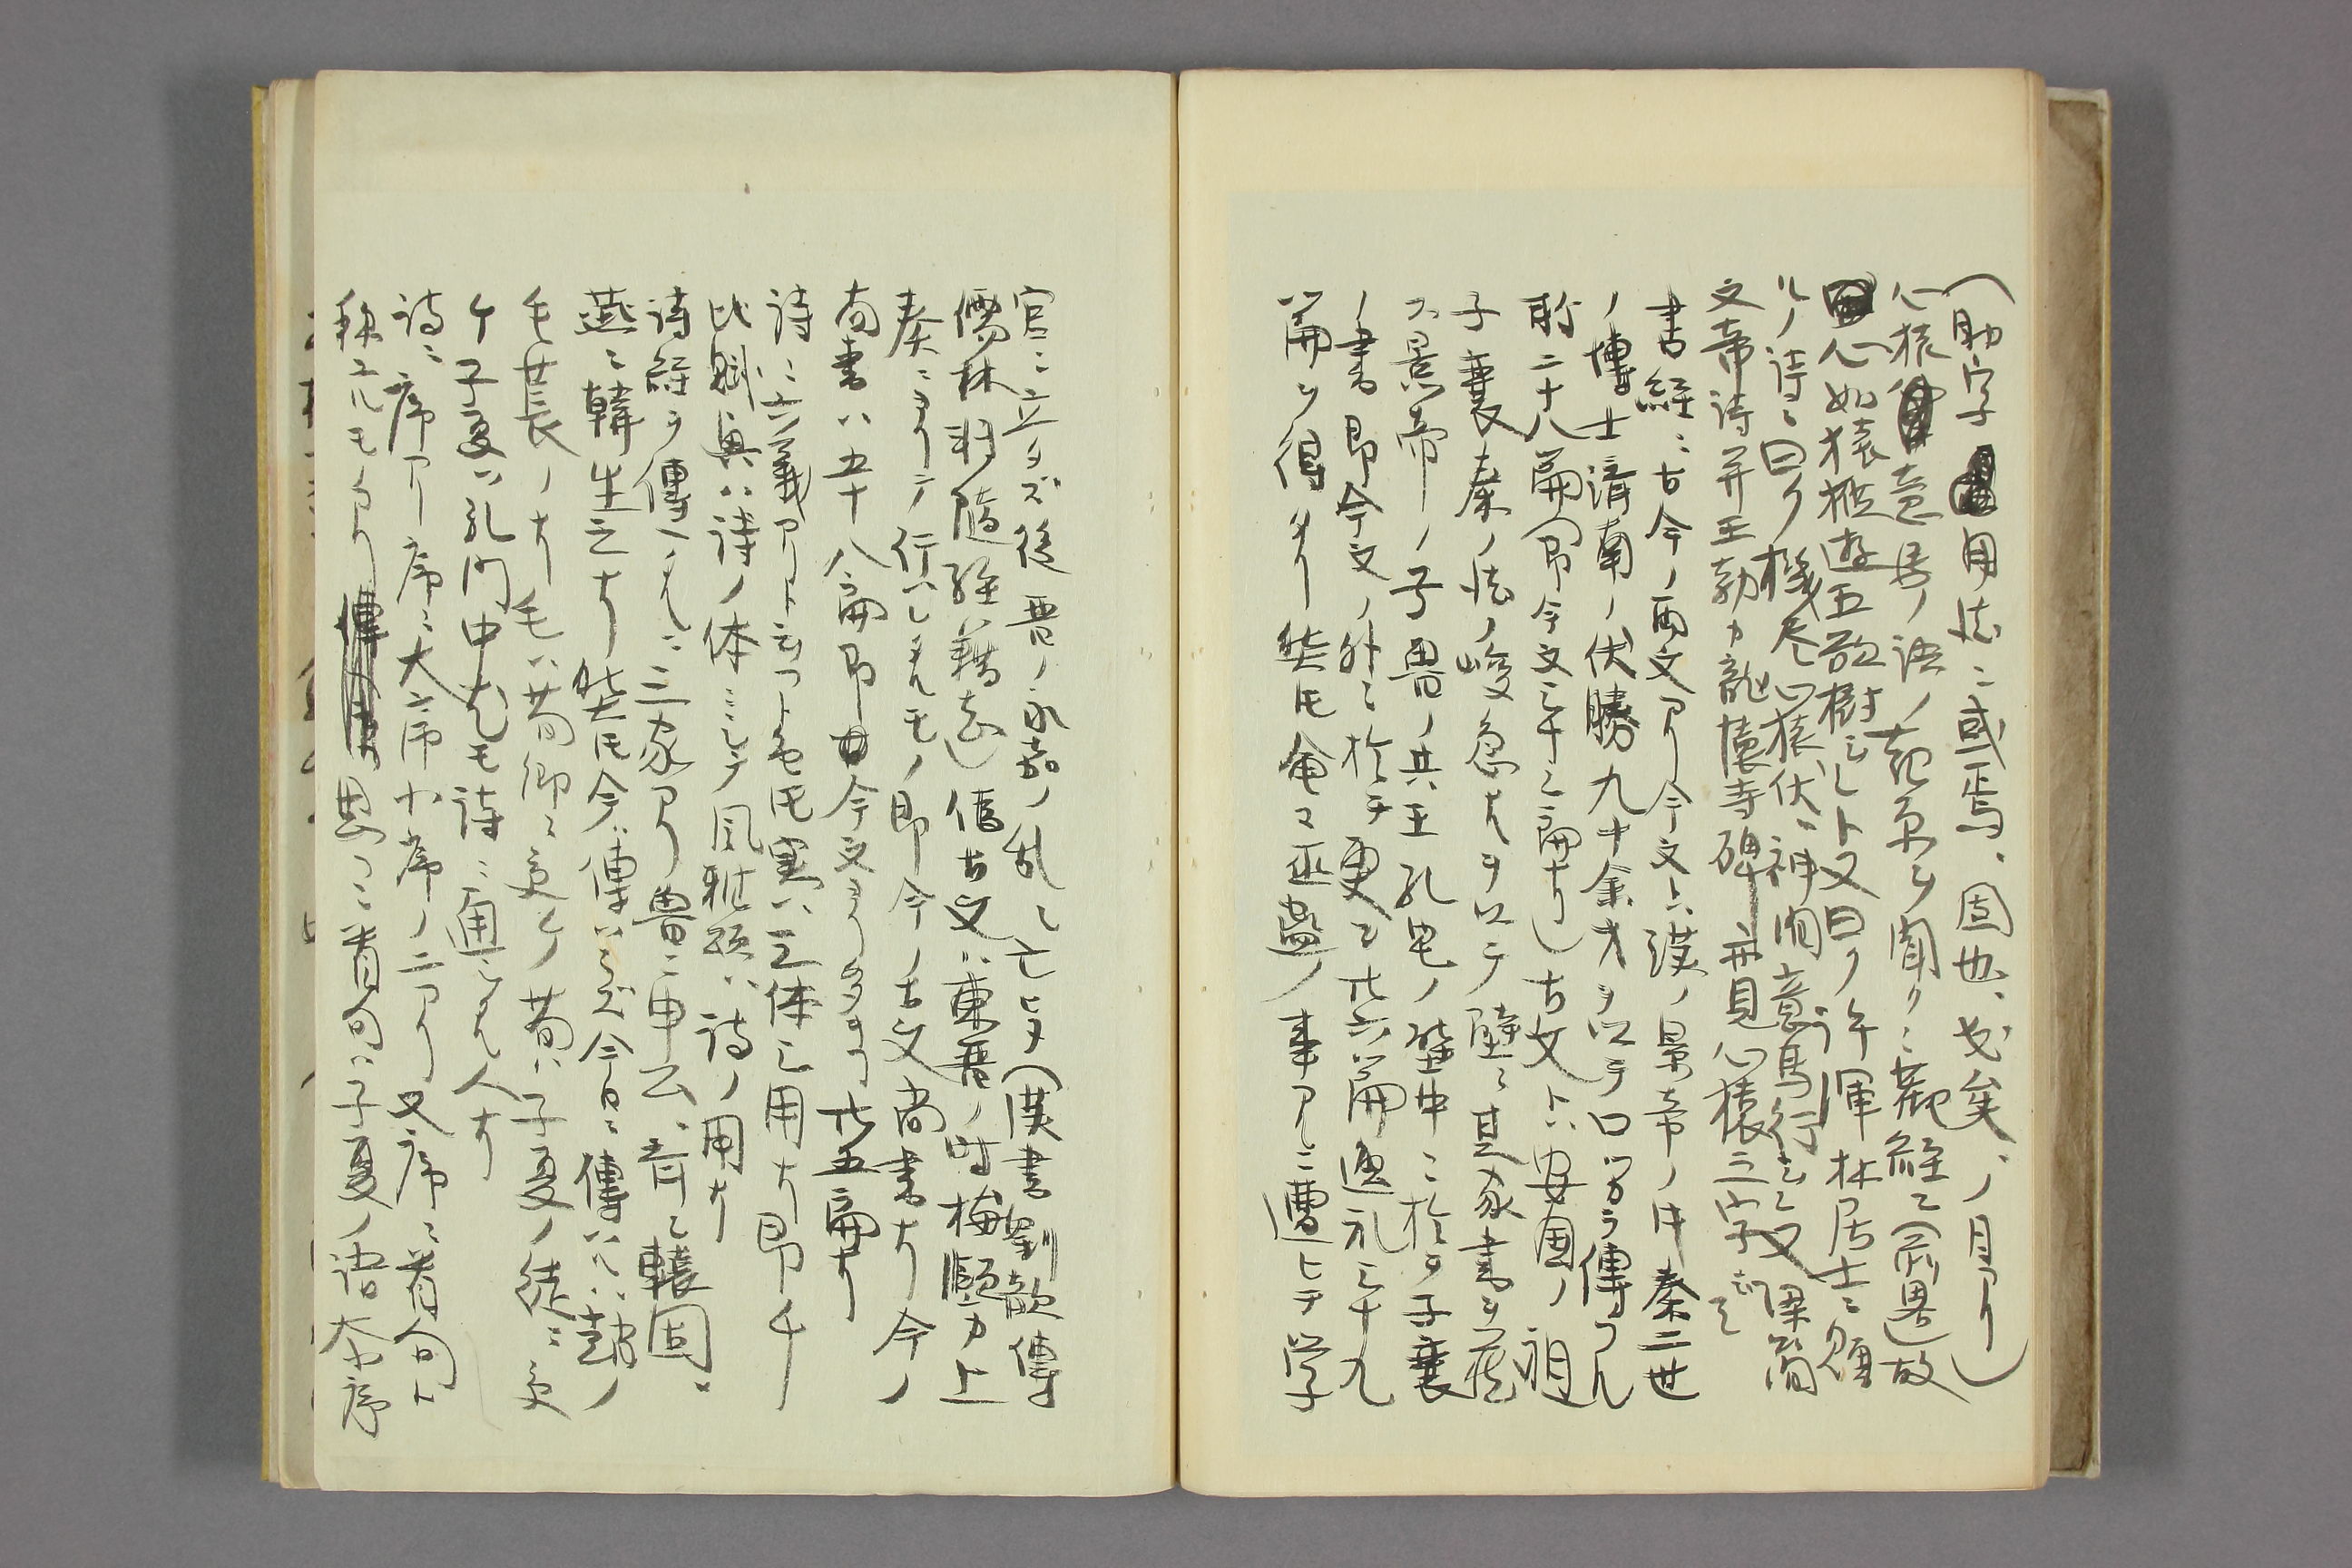 (助字用法ニ或焉、固也、也矣、ノ目アリ)
心猿意馬ノ語ノ苑原ヲ聞クニ蔵経ニ(前畧)故
心如猿猴遊五欲樹云々ト又曰ク許渾林居士ニ題
スルノ詩ニ曰ク機尽心猿伏神閑意馬行云々又梁簡
文帝詩并王勃カ龍懐寺碑ニ并見心猿之字云々
書経ニ古今ノ両文アリ今文トハ漢ノ景帝ノ時秦二世
ノ博士済南ノ伏勝九十余才ヲ以テ口ツヽ傳フル
所二十八篇(即今文三十三扁ナリ)古文トハ安国ノ祖
子襄秦ノ法ノ峻急ナルヲ以テ壁ニ其家書ヲ蔵
ス景帝ノ子魯ノ共王孔宅ノ壁中ニ於テ子襄
ノ書即今文ノ外ニ於テ更ニ廿六篇逸礼三十九
篇ヲ得タリ然モ會マ巫蠱ノ事アルニ遭ヒテ学
官ニ立タズ後晋ノ永嘉ノ乱ニ亡ヒヌ(漢書劉歆傳
儒林列隨経籍志)偽古文ハ東晋ノ時梅賾カ上
奏ニヨリテ行ハレタルモノ即今ノ古文尚書ナリ今ノ
尚書ハ五十八扁即今文ヨリ多キコト廿五扁ナリ
詩ニ六義アリト云フト雖モ実ハ三体三用ナリ即チ
比賦興ハ詩ノ体ニシテ風雅頌ハ詩ノ用ナリ
詩経ヲ傳ヘタルニ三家アリ魯ニ申公、斉ニ轅固、
燕ニ韓生之ナリ然モ今傳ハラズ今日ニ傳ハルハ趙ノ
毛萇ノナリ毛ハ荀卿ニ受ケ荀ハ子夏ノ徒ニ受
ケ子夏ハ孔門中尤モ詩ニ通シタル人ナリ
詩ニ序アリ序ニ大序小序ノ二アリ又序ニ首句ト
称スルモノアリ思フニ首句ハ子夏ノ語大序